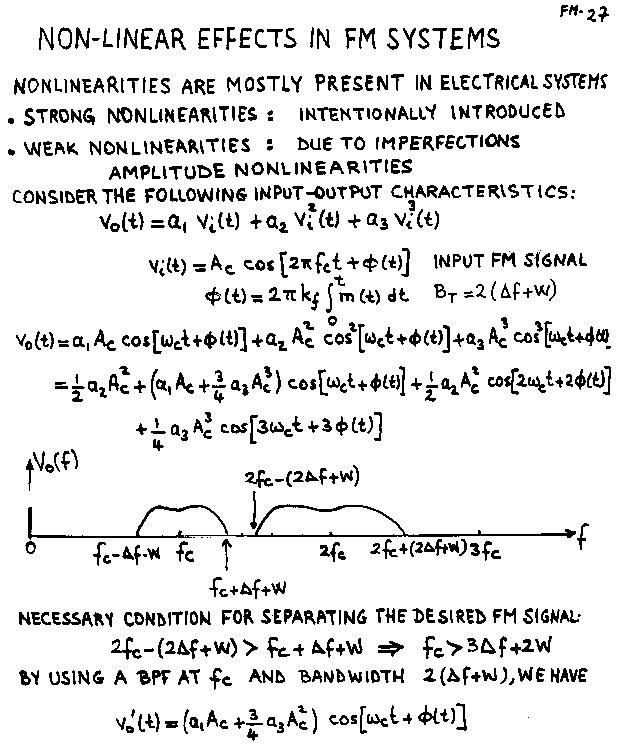 FM-27
NON-LINEAR EFFECTS IN FM SYSTEMS
NONLINEARITIES ARE MOSTLY PRESENT IN ELECTRICAL SYSTEMS
• STRONG NONLINEARITIES : INTENTIONALLY INTRODUCED
• WEAK NONLINEARITIES : DUE TO IMPERFECTIONS
AMPLITUDE NONLINEARITIES
CONSIDER THE FOLLOWING INPUT-OUTPUT CHARACTERISTICS:
V₀(t) = a₁ Vᵢ(t) + a₂ Vᵢ²(t) + a₃ Vᵢ³(t)
Vᵢ(t) = A_c cos[2πf_ct + ϕ(t)] INPUT FM SIGNAL
ϕ(t) = 2πk_f ∫₀ᵗ m(t) dt B_T = 2(Δf+W)
V₀(t) = a₁A_c cos[ω_ct+ϕ(t)] + a₂A_c² cos²[ω_ct+ϕ(t)] + a₃A_c³ cos³[ω_ct+ϕ(t)]
= ½ a₂A_c² + (a₁A_c + ¾ a₃A_c³) cos[ω_ct+ϕ(t)] + ½ a₂A_c² cos[2ω_ct+2ϕ(t)]
+ ¼ a₃A_c³ cos[3ω_ct + 3ϕ(t)]
V₀(f)
2f_c-(2Δf+W)
0 f_c-Δf-W f_c 2f_c 2f_c+(2Δf+W) 3f_c f
f_c+Δf+W
NECESSARY CONDITION FOR SEPARATING THE DESIRED FM SIGNAL
2f_c-(2Δf+W) > f_c + Δf+W ⇒ f_c > 3Δf+2W
BY USING A BPF AT f_c AND BANDWIDTH 2(Δf+W), WE HAVE
V₀'(t) = (a₁A_c + ¾ a₃A_c²) cos[ω_ct + ϕ(t)]